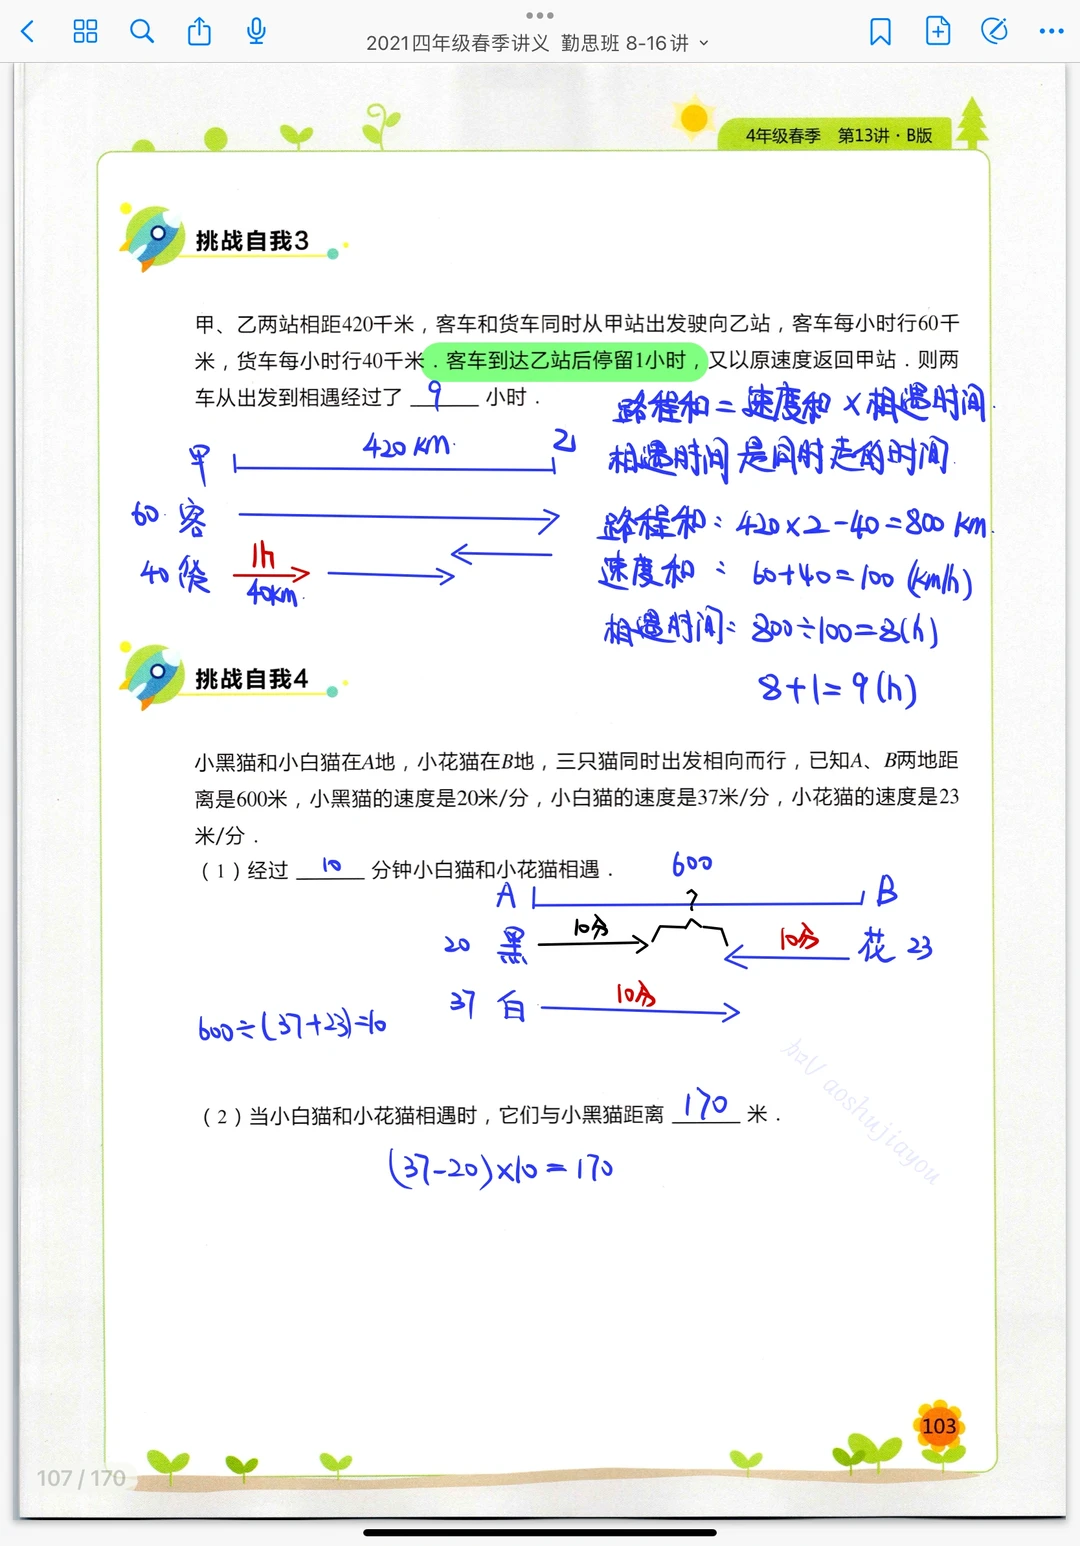 2021四年级春季讲义 勤思班 8-16讲
4年级春季 第13讲·B版
挑战自我3
甲、乙两站相距420千米，客车和货车同时从甲站出发驶向乙站，客车每小时行60千
米，货车每小时行40千米．客车到达乙站后停留1小时，又以原速度返回甲站．则两
车从出发到相遇经过了 9 小时．
路程和=速度和×相遇时间.
甲 420km. 乙
相遇时间是同时走的时间.
60 客
路程和: 420×2-40=800 km.
40 货 1h
40km.
速度和: 60+40=100 (km/h)
相遇时间: 800÷100=8(h)
8+1=9(h)
挑战自我4
小黑猫和小白猫在A地，小花猫在B地，三只猫同时出发相向而行，已知A、B两地距
离是600米，小黑猫的速度是20米/分，小白猫的速度是37米/分，小花猫的速度是23
米/分．
（1）经过 10 分钟小白猫和小花猫相遇．
600
A ? B
20 黑 10分 10分 花 23
37 白 10分
600÷(37+23)=10
（2）当小白猫和小花猫相遇时，它们与小黑猫距离 170 米．
aoshujiayou
(37-20)×10=170
103
107 / 170